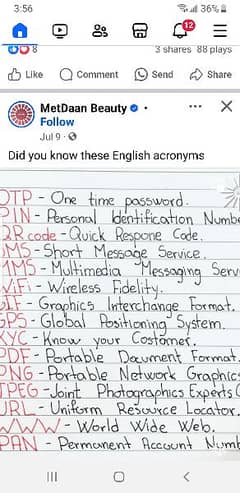 3:56
36%
12
8
3 shares 88 plays
Like
Comment
Send
Share
MetDaan Beauty
Follow
Jul 9
Did you know these English acronyms
OTP - One time password.
PIN - Personal Identification Numbe
QR code - Quick Respone Code.
SMS - Short Message Service.
MMS - Multimedia Messaging Serv
WiFi - Wireless Fidelity.
GIF - Graphics Interchange Format.
GPS - Global Positioning System.
KYC - Know your Costomer.
PDF - Portable Document Format.
PNG - Portable Network Graphics
JPEG - Joint Photographics Experts G
URL - Uniform Resource Locator.
WWW - World Wide Web.
PAN - Permanent Account Numb